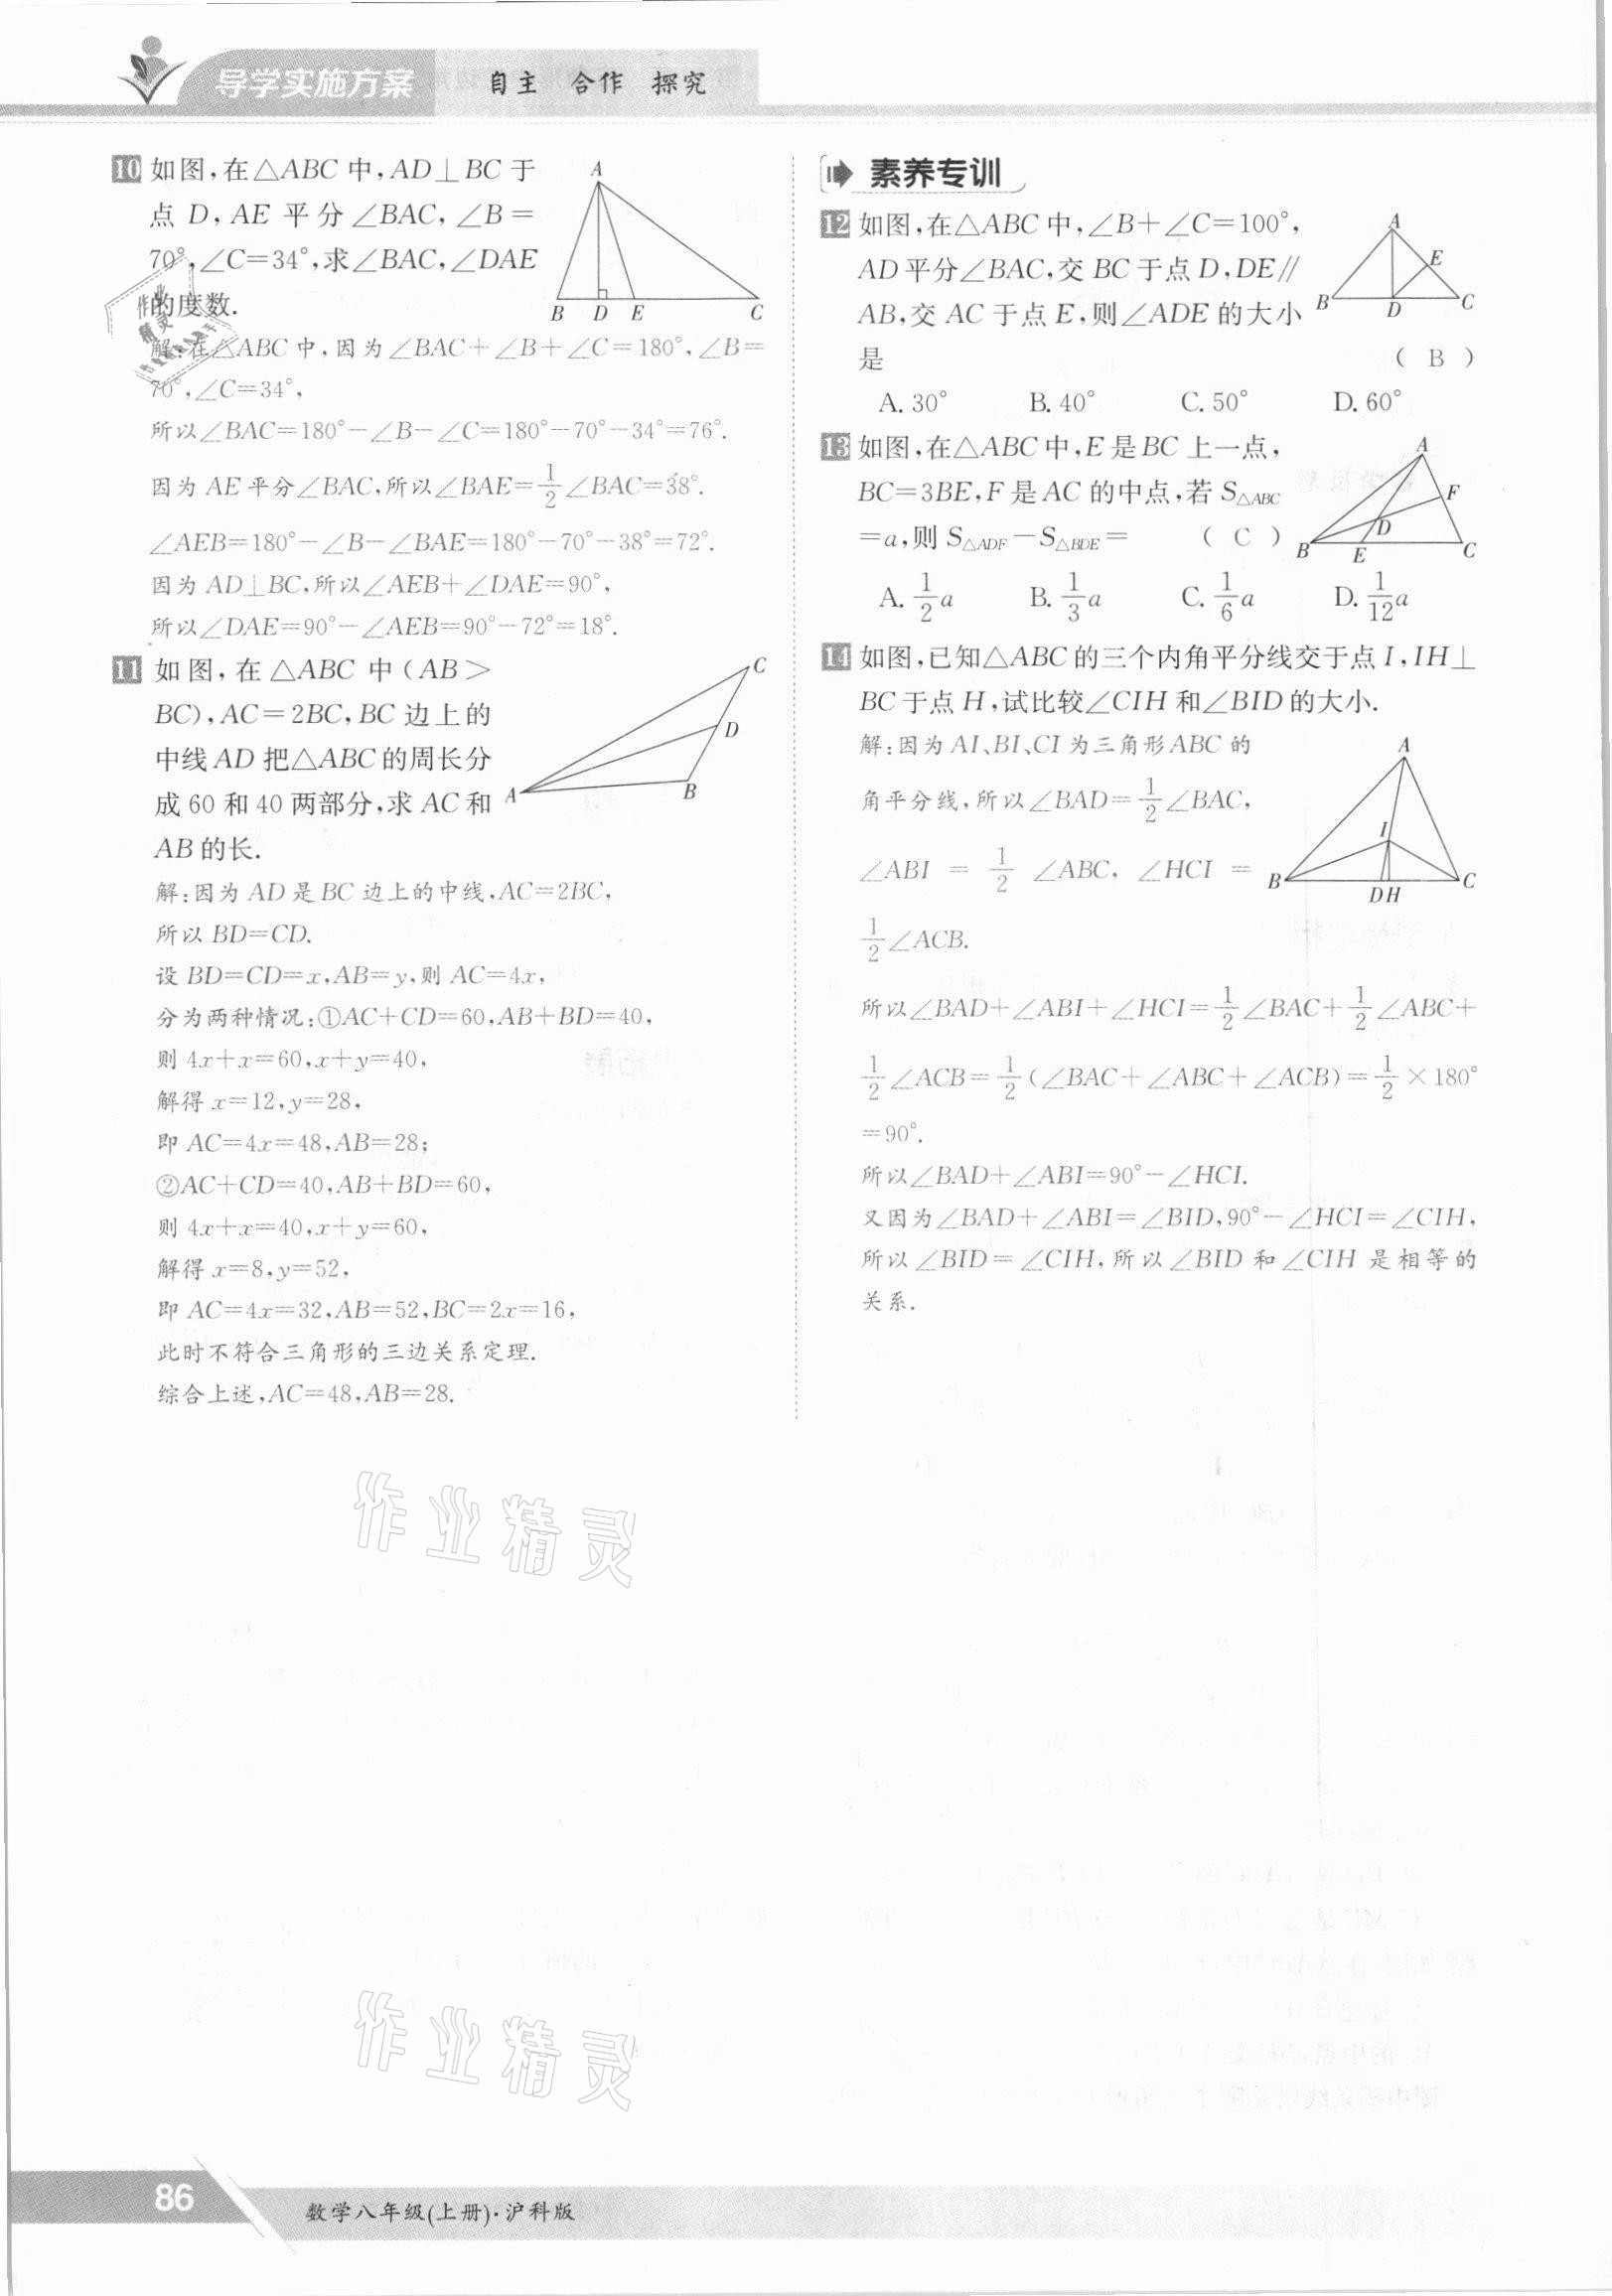 导学实施方案 自主 合作 探究
10 如图,在△ABC中,AD⊥BC于
点 D, AE 平分∠BAC, ∠B=
70°,∠C=34°,求∠BAC,∠DAE
的度数.
A
B D E C
解:在△ABC中,因为∠BAC+∠B+∠C=180°,∠B=
70°,∠C=34°,
所以∠BAC=180°-∠B-∠C=180°-70°-34°=76°.
因为 AE 平分∠BAC,所以∠BAE=1/2∠BAC=38°.
∠AEB=180°-∠B-∠BAE=180°-70°-38°=72°.
因为 AD⊥BC,所以∠AEB+∠DAE=90°,
所以∠DAE=90°-∠AEB=90°-72°=18°.
11 如图,在△ABC 中(AB>
BC),AC=2BC,BC 边上的
中线 AD 把△ABC的周长分
成 60 和 40 两部分,求 AC和
AB 的长.
C
D
A
B
解:因为 AD 是 BC 边上的中线,AC=2BC,
所以 BD=CD.
设 BD=CD=x,AB=y,则 AC=4x,
分为两种情况:①AC+CD=60,AB+BD=40,
则 4x+x=60,x+y=40,
解得 x=12,y=28,
即 AC=4x=48,AB=28;
②AC+CD=40,AB+BD=60,
则 4x+x=40,x+y=60,
解得 x=8,y=52,
即 AC=4x=32,AB=52,BC=2x=16,
此时不符合三角形的三边关系定理.
综合上述,AC=48,AB=28.
素养专训
12 如图,在△ABC中,∠B+∠C=100°,
AD平分∠BAC,交 BC 于点 D,DE∥
AB,交 AC 于点 E,则∠ADE 的大小
是 ( B )
A
E
B D C
A. 30° B. 40° C. 50° D. 60°
13 如图,在△ABC中,E是BC上一点,
BC=3BE,F是AC的中点,若 S△ABC
=a,则 S△ADF-S△BDE= ( C )
A
F
D
B E C
A. 1/2 a B. 1/3 a C. 1/6 a D. 1/12 a
14 如图,已知△ABC的三个内角平分线交于点 I,IH⊥
BC于点 H,试比较∠CIH 和∠BID的大小.
解:因为AI、BI、CI 为三角形ABC 的
角平分线,所以∠BAD=1/2∠BAC,
∠ABI = 1/2 ∠ABC, ∠HCI =
1/2∠ACB.
A
I
B DH C
所以∠BAD+∠ABI+∠HCI=1/2∠BAC+1/2∠ABC+
1/2∠ACB=1/2(∠BAC+∠ABC+∠ACB)=1/2×180°
=90°.
所以∠BAD+∠ABI=90°-∠HCI.
又因为∠BAD+∠ABI=∠BID,90°-∠HCI=∠CIH,
所以∠BID=∠CIH,所以∠BID 和∠CIH 是相等的
关系.
作业精灵
作业精灵
作业精灵
86 数学八年级(上册)·沪科版